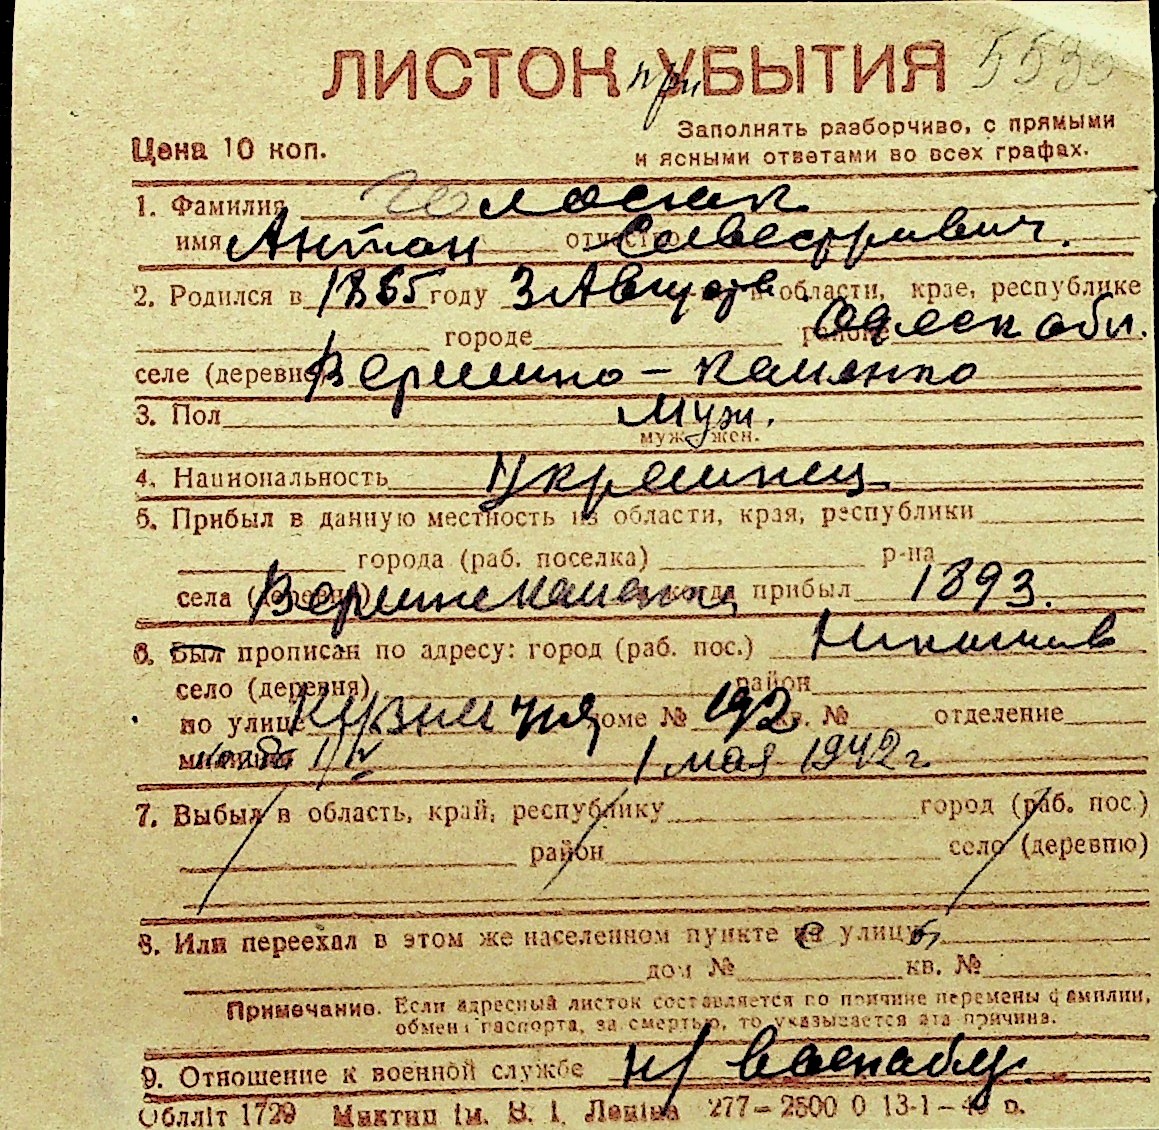 ЛИСТОК при УБЫТИЯ 5539
Цена 10 коп.
Заполнять разборчиво, с прямыми
и ясными ответами во всех графах.
1. Фамилия
имя Антон отчество Савестривич.
2. Родился в 1865 году 3 Августа в области, крае, республике
городе районе Одеск обл.
селе (деревне) Вершино-каменко
3. Пол муж.
муж. жен.
4. Национальность Украинец
5. Прибыл в данную местность из области, края, республики
города (раб. поселка) р-на
села (деревни) когда прибыл 1893.
6. Был прописан по адресу: город (раб. пос.)
село (деревня) район
по улице доме № 192 кв. № отделение
милиции 1 мая 1942 г
7. Выбыл в область, край, республику город (раб. пос.)
район село (деревню)
8. Или переехал в этом же населенном пункте с улицы
дом № кв. №
Примечание. Если адресный листок составляется по причине перемены фамилии,
обмена паспорта, за смертью, то указывается эта причина.
9. Отношение к военной службе н/военнобяз.
Облліт 1729 Миктип ім. В. І. Леніна 277—2500 0 13-1-4 р.